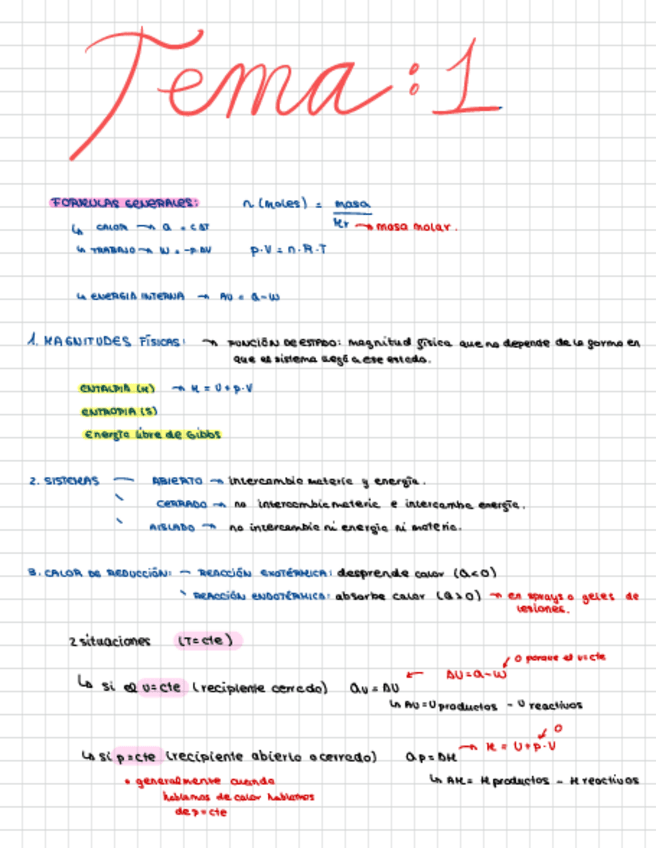 Tema:1
FORMULAS GENERALES: n (moles) = masa
Mr → masa molar.
↳ CALOR → Q = C ΔT
↳ TRABAJO → W = -P·ΔV P·V = n·R·T
↳ ENERGIA INTERNA → ΔU = Q-W
1. MAGNITUDES FÍSICAS: → FUNCIÓN DE ESTADO: magnitud física que no depende de la forma en
que el sistema llegó a ese estado.
ENTALPIA (H) → H = U + P·V
ENTROPIA (S)
Energía libre de Gibbs
2. SISTEMAS — ABIERTO → intercambio materia y energía.
CERRADO → no intercambia materia e intercambia energía.
AISLADO → no intercambia ni energia ni materia.
3. CALOR DE REDUCCIÓN: — REACCIÓN EXOTÉRMICA: desprende calor (Q<0)
REACCIÓN ENDOTÉRMICA: absorbe calor (Q>0) → en sprays o geles de
lesiones.
2 situaciones (T=cte)
0 porque el v=cte
↳ si el v=cte (recipiente cerrado) Qv = ΔU ← ΔU=Q-W
↳ ΔU=U productos - U reactivos
0
↳ si p=cte (recipiente abierto o cerrado) Qp=ΔH → H = U+P·V
• generalmente cuando
↳ ΔH= H productos - H reactivos
hablamos de calor hablamos
de p=cte